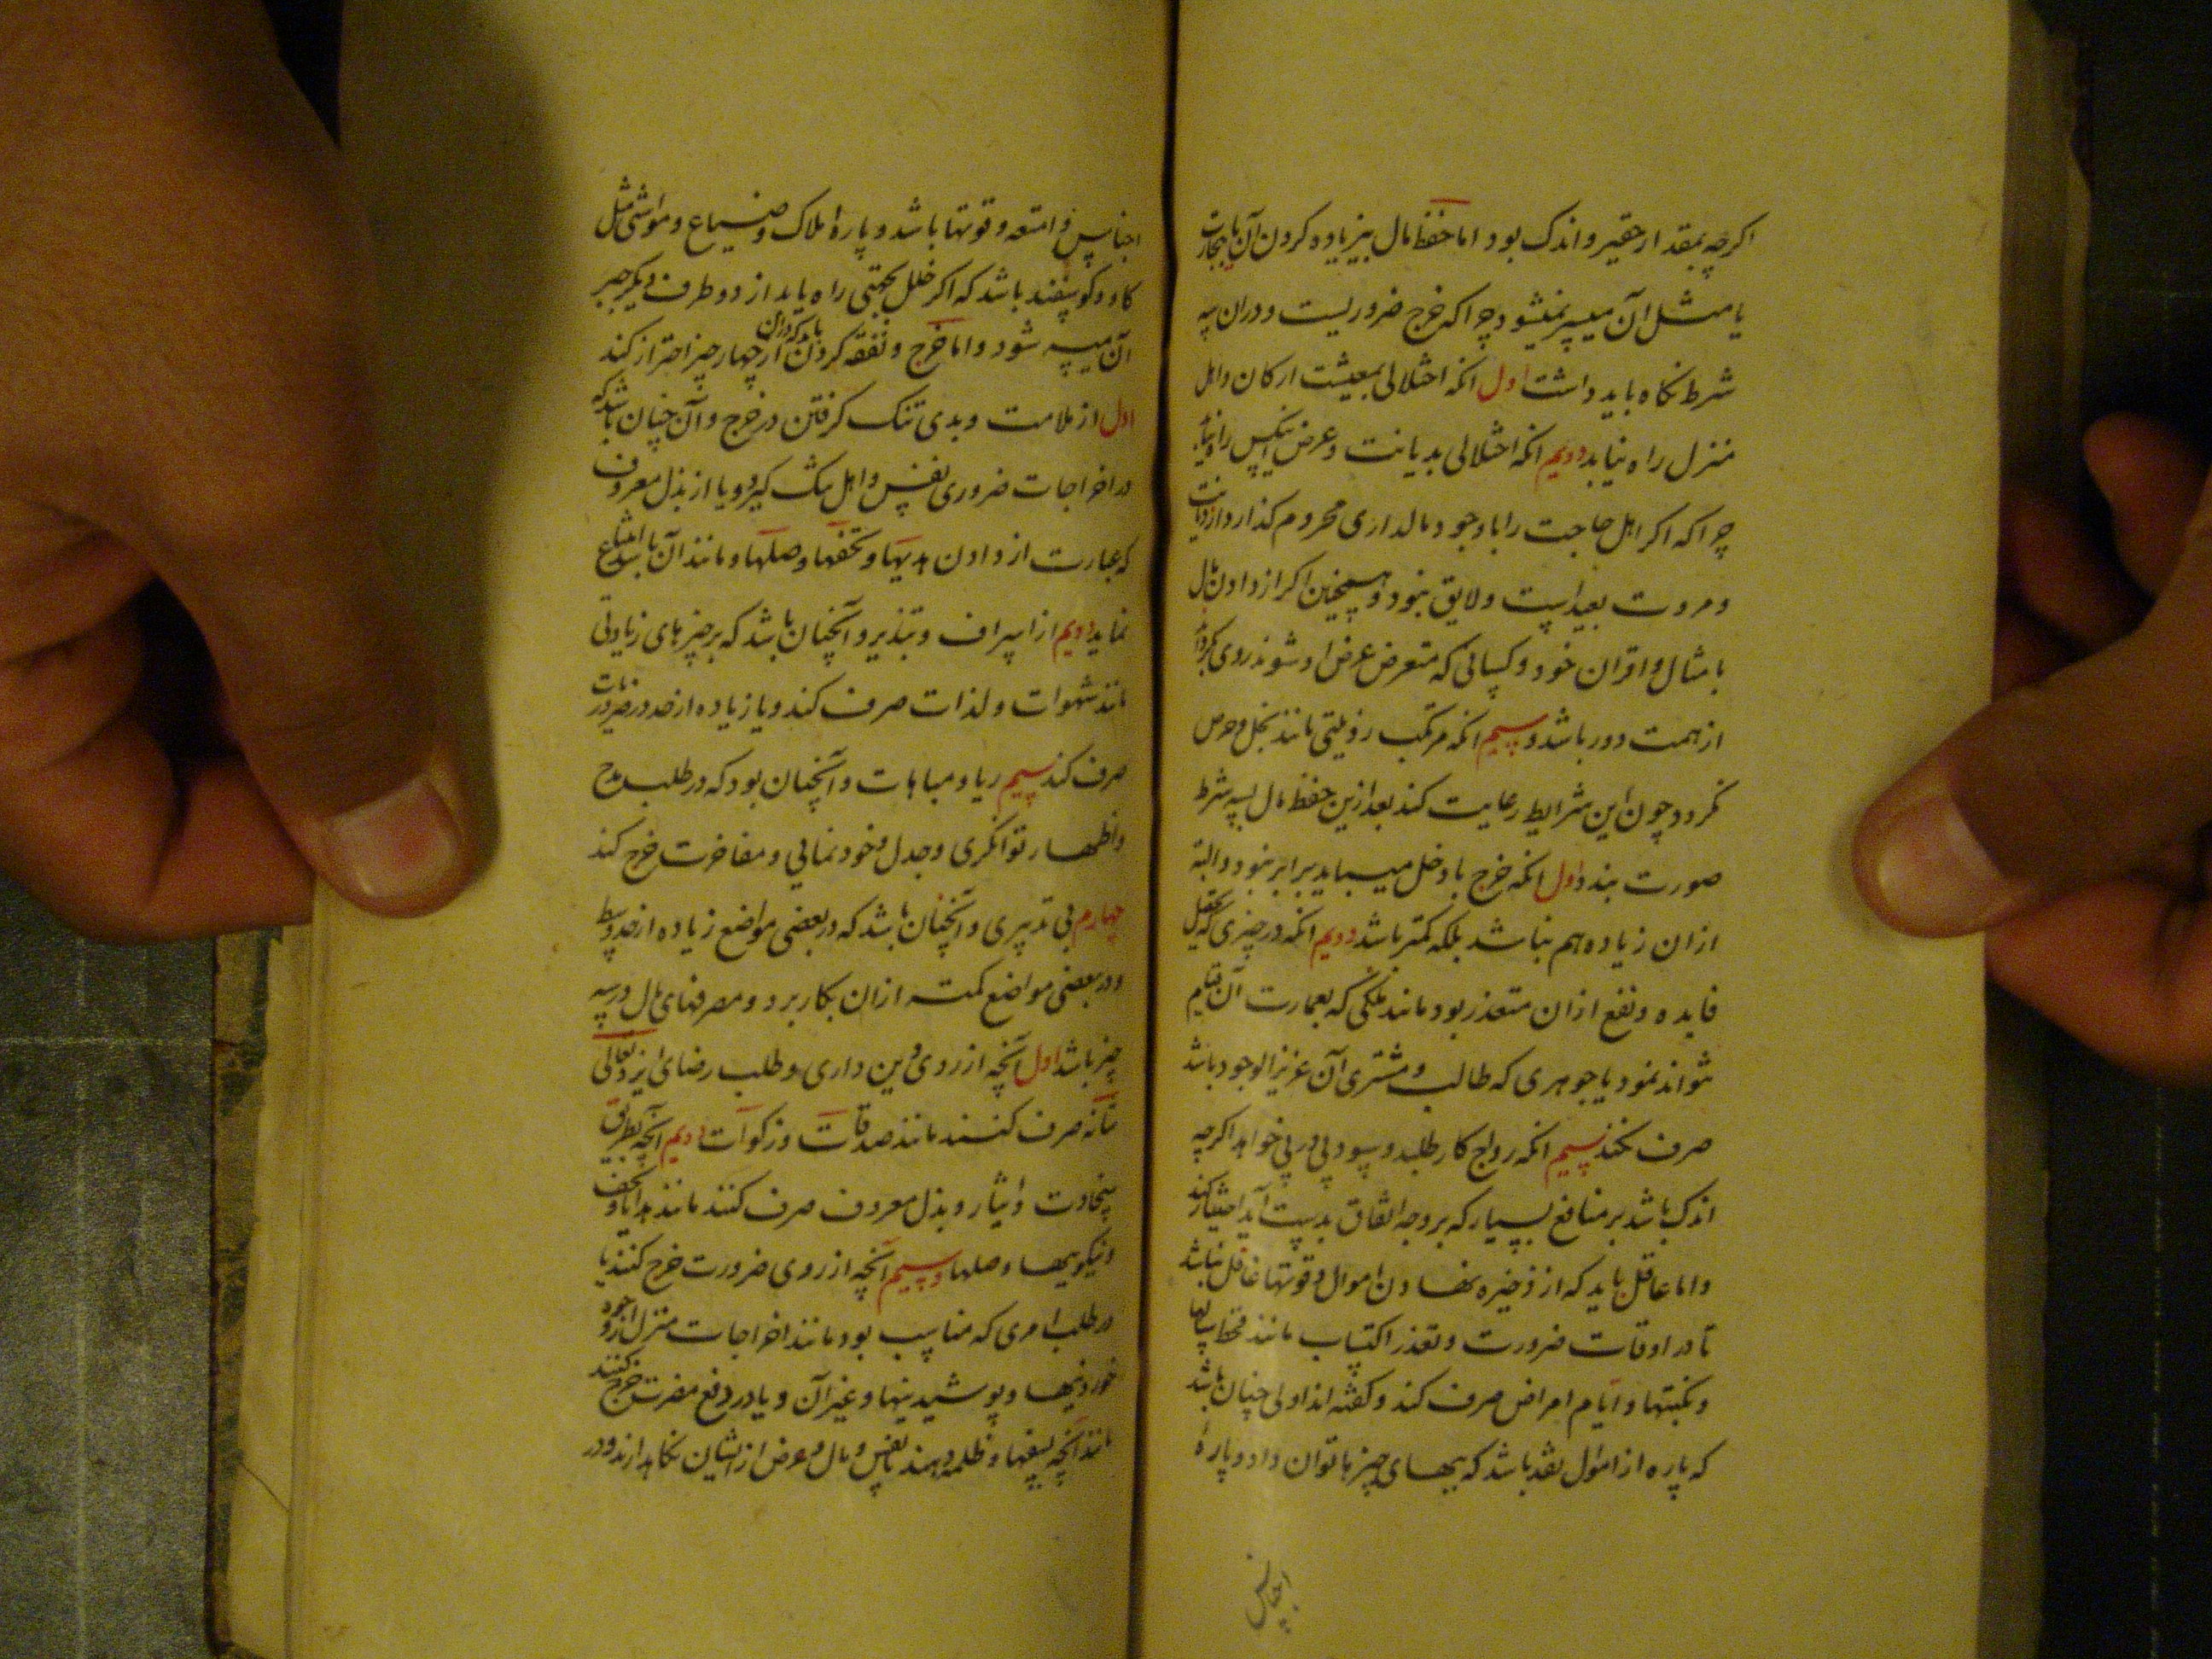 اکرچه بمقدار حقیر و اندک بود اما حفظ مال بیزیاده کردن آن یا بتجارت
یا مثل آن میسر نمیشود چراکه خرج ضروریست و دران سه
شرط نکاه باید داشت اول انکه اختلالی بمعیشت ارکان و اهل
منزل راه نیابد دویم انکه اختلالی بدیانت و عرض اینکس راه نیابد
چراکه اکر اهل حاجت را باوجود مالداری محروم کذارد از دیانت
و مروت بعید است و لایق نبود و همچنین اکر از دادن مال
بامثال و اقران خود و کسانی که متعرض عرض او شوند روی بکرداند
از همت دور باشد و سیم انکه مرتکب رذیلتی مانند بخل و حرص
نکردد چون این شرایط رعایت کند بعد ازین حفظ مال بسه شرط
صورت بندد اول انکه خرج با دخل میباید برابر نبود و البته
ازان زیاده هم نباشد بلکه کمتر باشد دویم انکه در چیزی که تحصیل
فایده و نفع ازان متعذر بود مانند ملکی که بعمارت آن قیام
نتواند نمود یا جوهری که طالب و مشتری آن عزیز الوجود باشد
صرف نکند سیم انکه رواج کار طلبد و سود پی در پی خواهد اکرچه
اندک باشد بر منافع بسیار که بر وجه اتفاق بدست آید اختیار کند
و اما عاقل باید که از ذخیره نهادن اموال و قوتها غافل نباشد
تا در اوقات ضرورت و تعذر اکتساب مانند قحط سالها
و نکبتها و ایام امراض صرف کند و کفته اند اولی چنان باشد
که پاره از اموال نقد باشد که ببهای چیزها توان داد و پارهٔ
اجناس
اجناس و امتعه و قوتها باشد و پاره املاک و ضیاع و مواشی مثل
کاو و کوسفند باشد که اکر خلل بجهتی راه یابد از دو طرف دیکر جبر
آن میسر شود و اما خرج و نفقه کردن باید که دران از چهار چیز احتراز کند
اول از ملامت و بدی تنک کرفتن در خرج و آن چنان باشد که
در اخراجات ضروری نفس و اهل تنک کیرد و یا از بذل معروف
که عبارت از دادن هدیها و تحفها و صلها و مانند آن باشد امتناع
نماید دویم از اسراف و تبذیر و آنچنان باشد که بر چیزهای زیادتی
مانند شهوات و لذات صرف کند و یا زیاده از حد در ضروریات
صرف کند سیم ریا و مباهات و آنچنان بود که در طلب مدح
و اظهار توانکری و جدل و خود نمایی و مفاخرت خرج کند
چهارم بی تدبیری و آنچنان باشد که در بعضی مواضع زیاده از حد وسط
و در بعضی مواضع کمتر ازان بکار برد و مصرفهای مال در سه
چیز باشد اول آنچه از روی دین داری و طلب رضای ایزد تعالی
شانه صرف کنند مانند صدقات و زکوات دویم آنچه بطریق
سخاوت و ایثار و بذل معروف صرف کنند مانند هدایا و تحف
و نیکوییها و صلها و سیم آنچه از روی ضرورت خرج کنند یا
در طلب امری که مناسب بود مانند اخراجات منزل از وجوه
خوردنیها و پوشیدنیها و غیر آن و یا در دفع مضرت خرج کنند
مانند آنچه بسفیها و ظلمه دهند تا نفس و مال و عرض از ایشان نکاه دارند و در